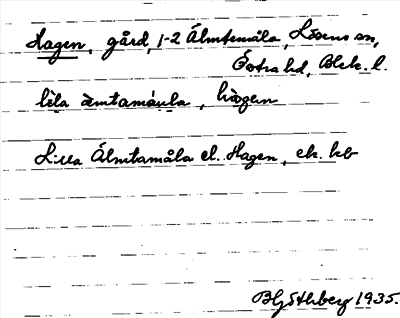 Hagen, gård, 1-2 Älmtamåla, Lösens sn,
Östra hd, Blek. l.
lìla æ̀mtamåula, hàgen
Lilla Älmtamåla el. Hagen, ek. kb
1935.